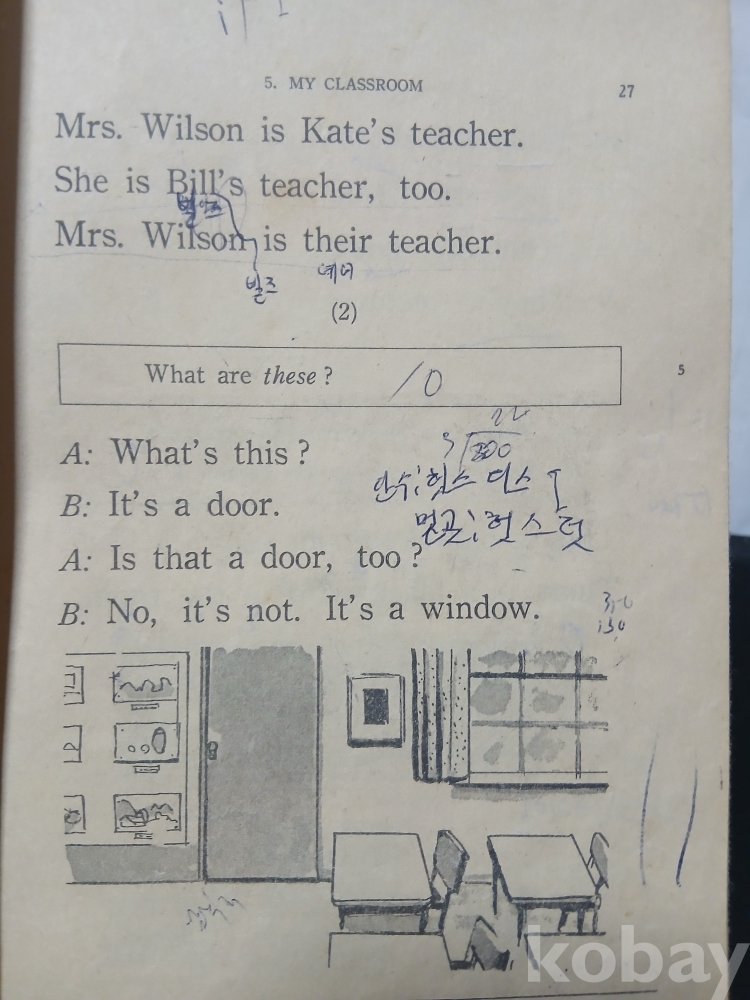 5. MY CLASSROOM 27
Mrs. Wilson is Kate's teacher.
She is Bill's teacher, too.
Mrs. Wilson is their teacher.
빌즈
데어
(2)
What are these? 10
5
A: What's this?
B: It's a door.
A: Is that a door, too?
B: No, it's not. It's a window.
kobay